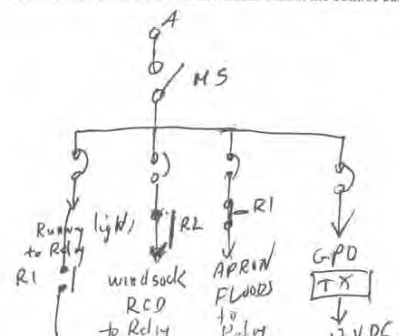 A
MS
Runway lights
to Relay
R1
R2
windsock
RCD
to Relay
R1
APRON
FLOODS
to
Relay
GPO
TX
VDC